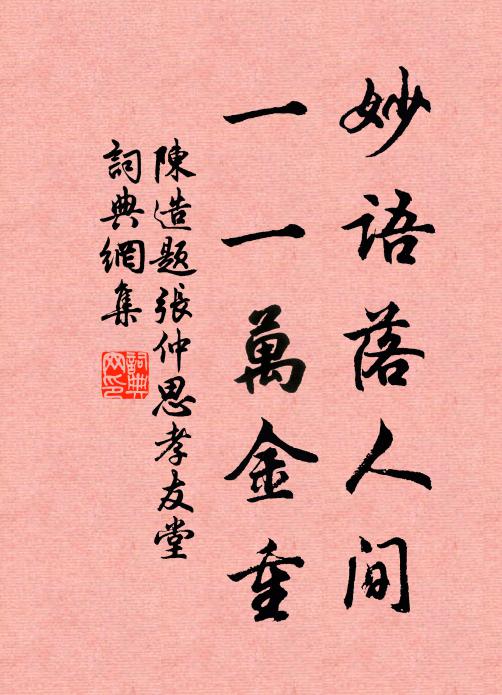 妙語落人間
一一萬金重
陳造題張仲思孝友堂
詞典網集
詞典網印